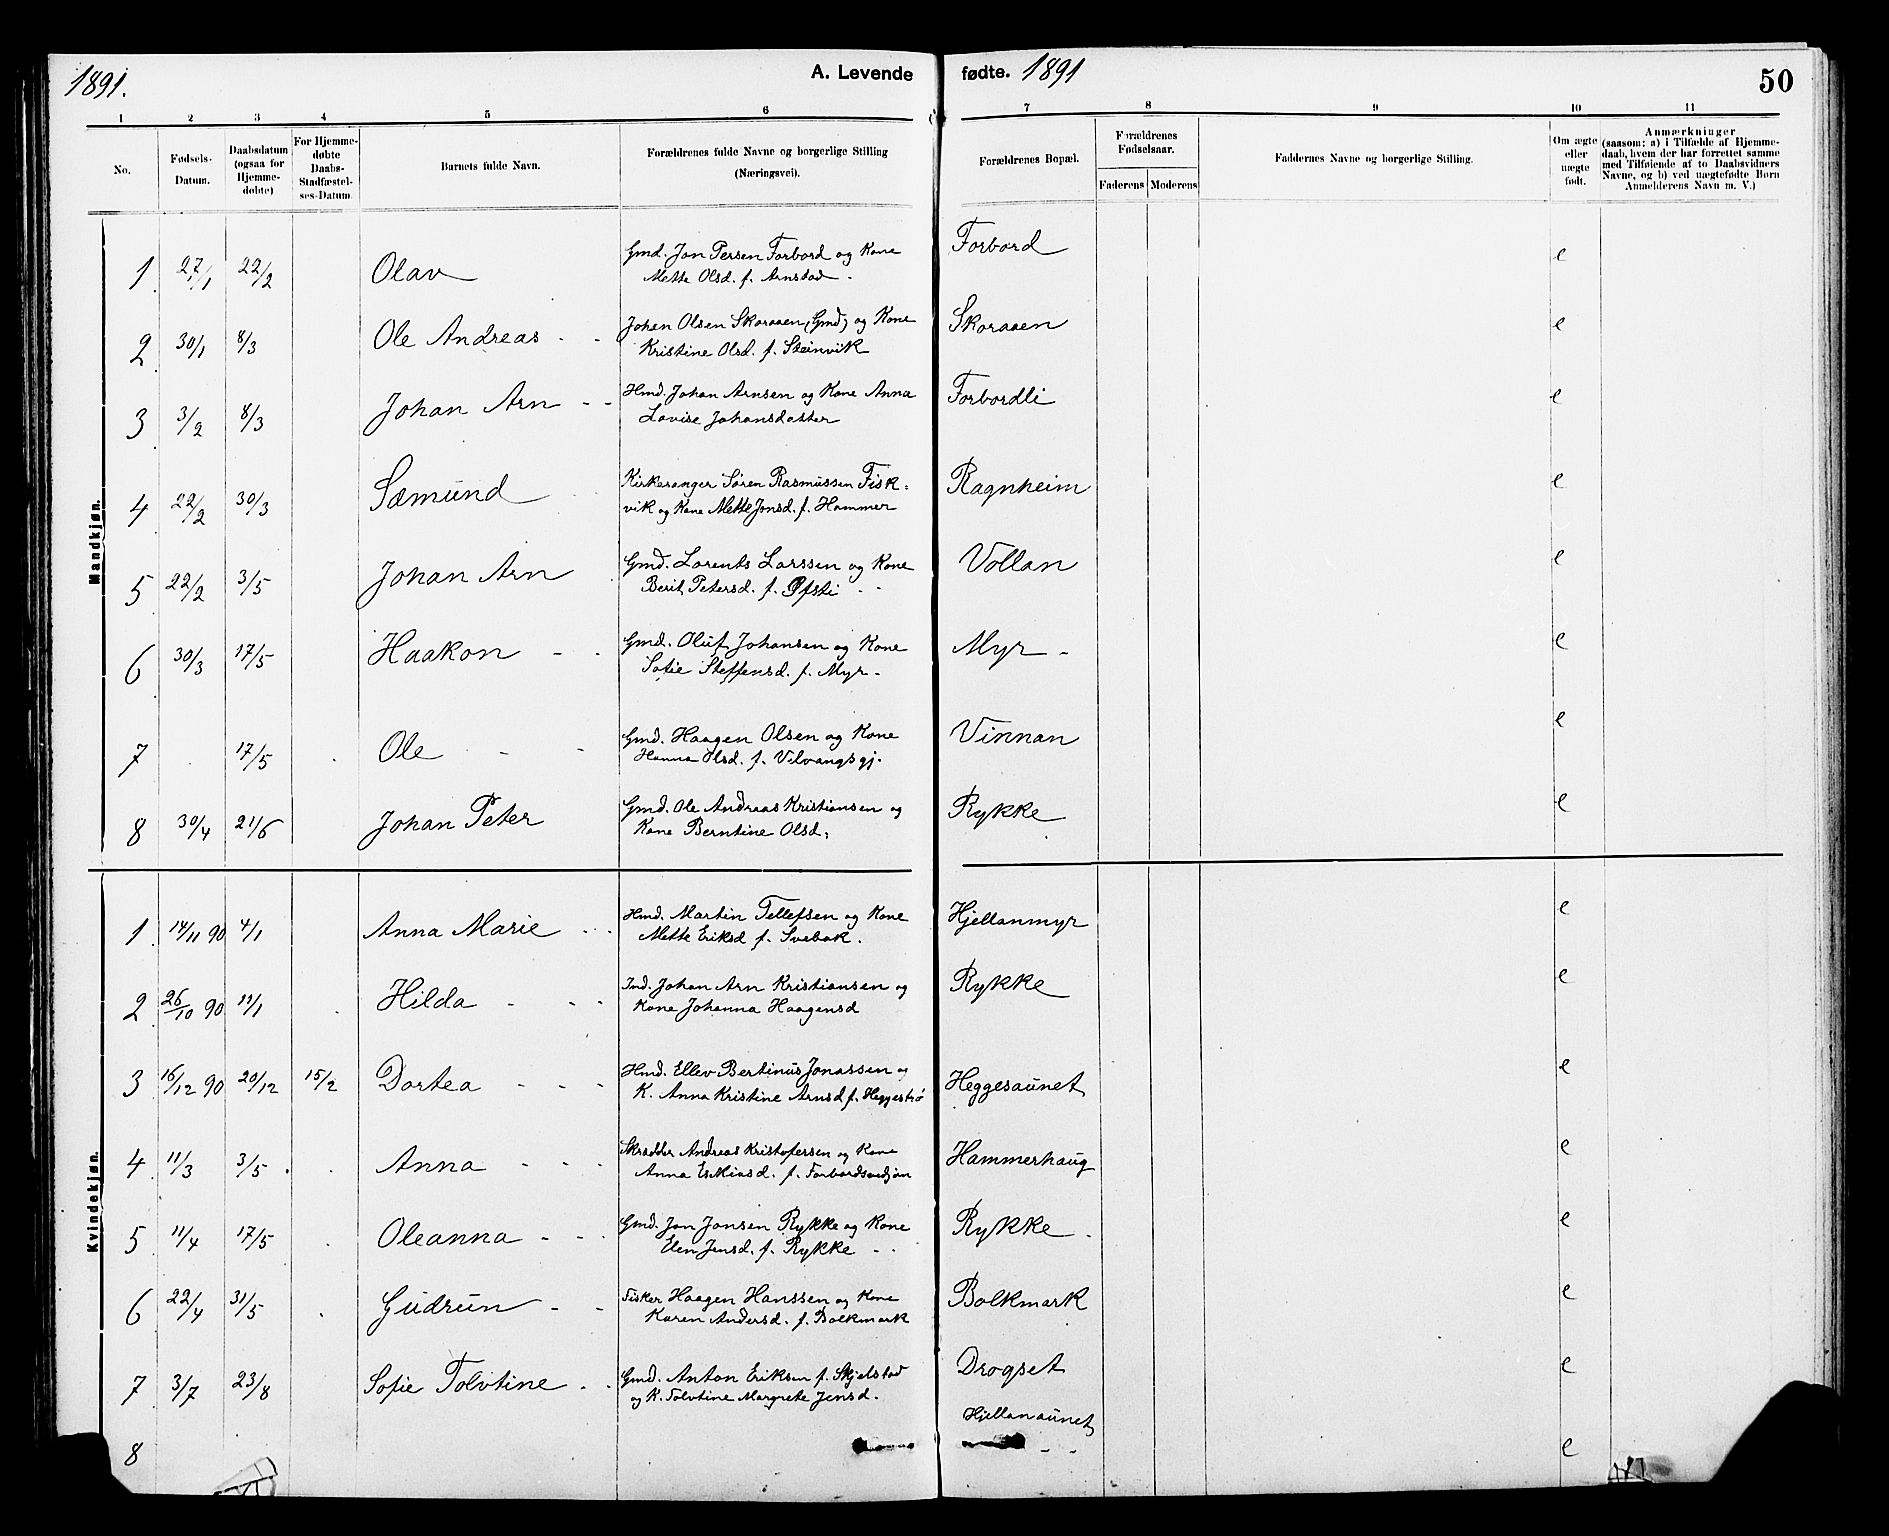 1891.
A. Levende fødte. 1891
50
1 2 3 4 5 6 7 8 9 10 11
No.
Fødsels-Datum.
Daabsdatum (ogsaa for Hjemme-døbte)
For Hjemme-døbte Daabs-Stadfæstel-ses-Datum.
Barnets fulde Navn.
Forældrenes fulde Navne og borgerlige Stilling
(Næringsvei).
Forældrenes Bopæl.
Forældrenes Fødselsaar.
Faderens Moderens
Faddernes Navne og borgerlige Stilling.
Om ægte eller uægte født.
Anmærkninger
(saasom: a) i Tilfælde af Hjemme-
daab, hvem der har forrettet samme
med Tilføiende af to Daabsvidners
Navne, og b) ved uægtefødte Børn
Anmelderens Navn m. V.)
Mandkjøn.
1 27/1 22/2 Olav Gmd. Jon Persen Forbord og Kone Forbord e
Mette Olsd. f. Arnstad.
2 30/1 8/3 Ole Andreas Johan Olsen Skoraaen, (Gmd) og Kone Skoraaen e
Kristine Olsd. f. Steinvik
3 3/2 8/3 Johan Arn Hmd. Johan Arnsen og Kone Anna Forbordli e
Lovise Johansdatter
4 22/2 30/3 Sæmund Kirkesanger Søren Rasmussen Fisk- Ragnheim e
vik og Kone Mette Jonsd. f. Hammer
5 22/2 3/5 Johan Arn Gmd. Lorents Larssen og Kone Vollan e
Berit Petersd. f. Øfsti
6 30/3 17/5 Haakon Gmd. Oluf Johansen og Kone Myr e
Sofie Steffensd. f. Myr
7 17/5 Ole Gmd. Haagen Olsen og Kone Vinnan e
Hanna Olsd. f. Vilvangsgj.
8 30/4 21/6 Johan Peter Gmd. Ole Andreas Kristiansen og Rykke e
Kone Berntine Olsd.
Kvindekjøn.
1 14/11 90 4/1 Anna Marie Hmd. Martin Tellefsen og Kone Hjellanmyr e
Mette Eriksd f. Svebak.
2 26/10 90 11/1 Hilda Ind. Johan Arn Kristiansen og Rykke e
Kone Johanna Haagensd
3 16/12 90 20/12 15/2 Dortea Hmd. Ellev Bertinus Jonassen og Heggesaunet e
K. Anna Kristine Arnsd f. Heggestrø
4 11/3 3/5 Anna Skrædder Andreas Kristofersen og Kone Hammerhaug e
Anna Eskiasd. f.
5 11/4 17/5 Oleanna Gmd. Jon Jonsen Rykke og Kone Rykke e
Elen Jensd. f. Rykke
6 22/4 31/5 Gudrun Fisker Haagen Hanssen og Kone Bolkmark e
Karen Andersd. f. Bolkmark
7 3/7 23/8 Sofie Tolvtine Gmd. Anton Eriksen f. Skjelstad Drogset e
og K. Tolvtine Margrete Jensd.
8 Hjellanaunet e